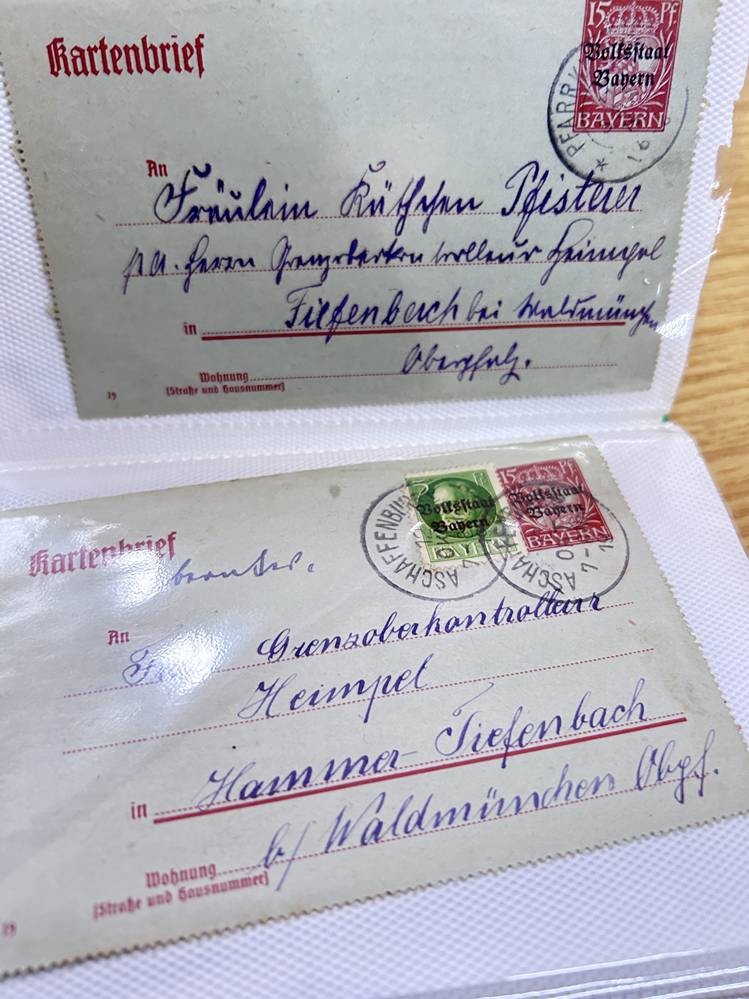 Kartenbrief
15 Pf.
Volksstaat
Bayern
BAYERN
PFARRK
An
Fräulein Käthchen Pfisterer
p.A. Herrn Grenzoberkontrolleur Heimpel
in Tiefenbach bei Waldmünchen
Wohnung Oberpfalz.
(Straße und Hausnummer)
Kartenbrief
Volksstaat
Bayern
15 Pf.
Volksstaat
Bayern
BAYERN
ASCHAFFENBURG
ASCHAFFEN
An
Grenzoberkontrolleur
Heimpel
in Hammer-Tiefenbach
Wohnung b/ Waldmünchen Obpf.
(Straße und Hausnummer)